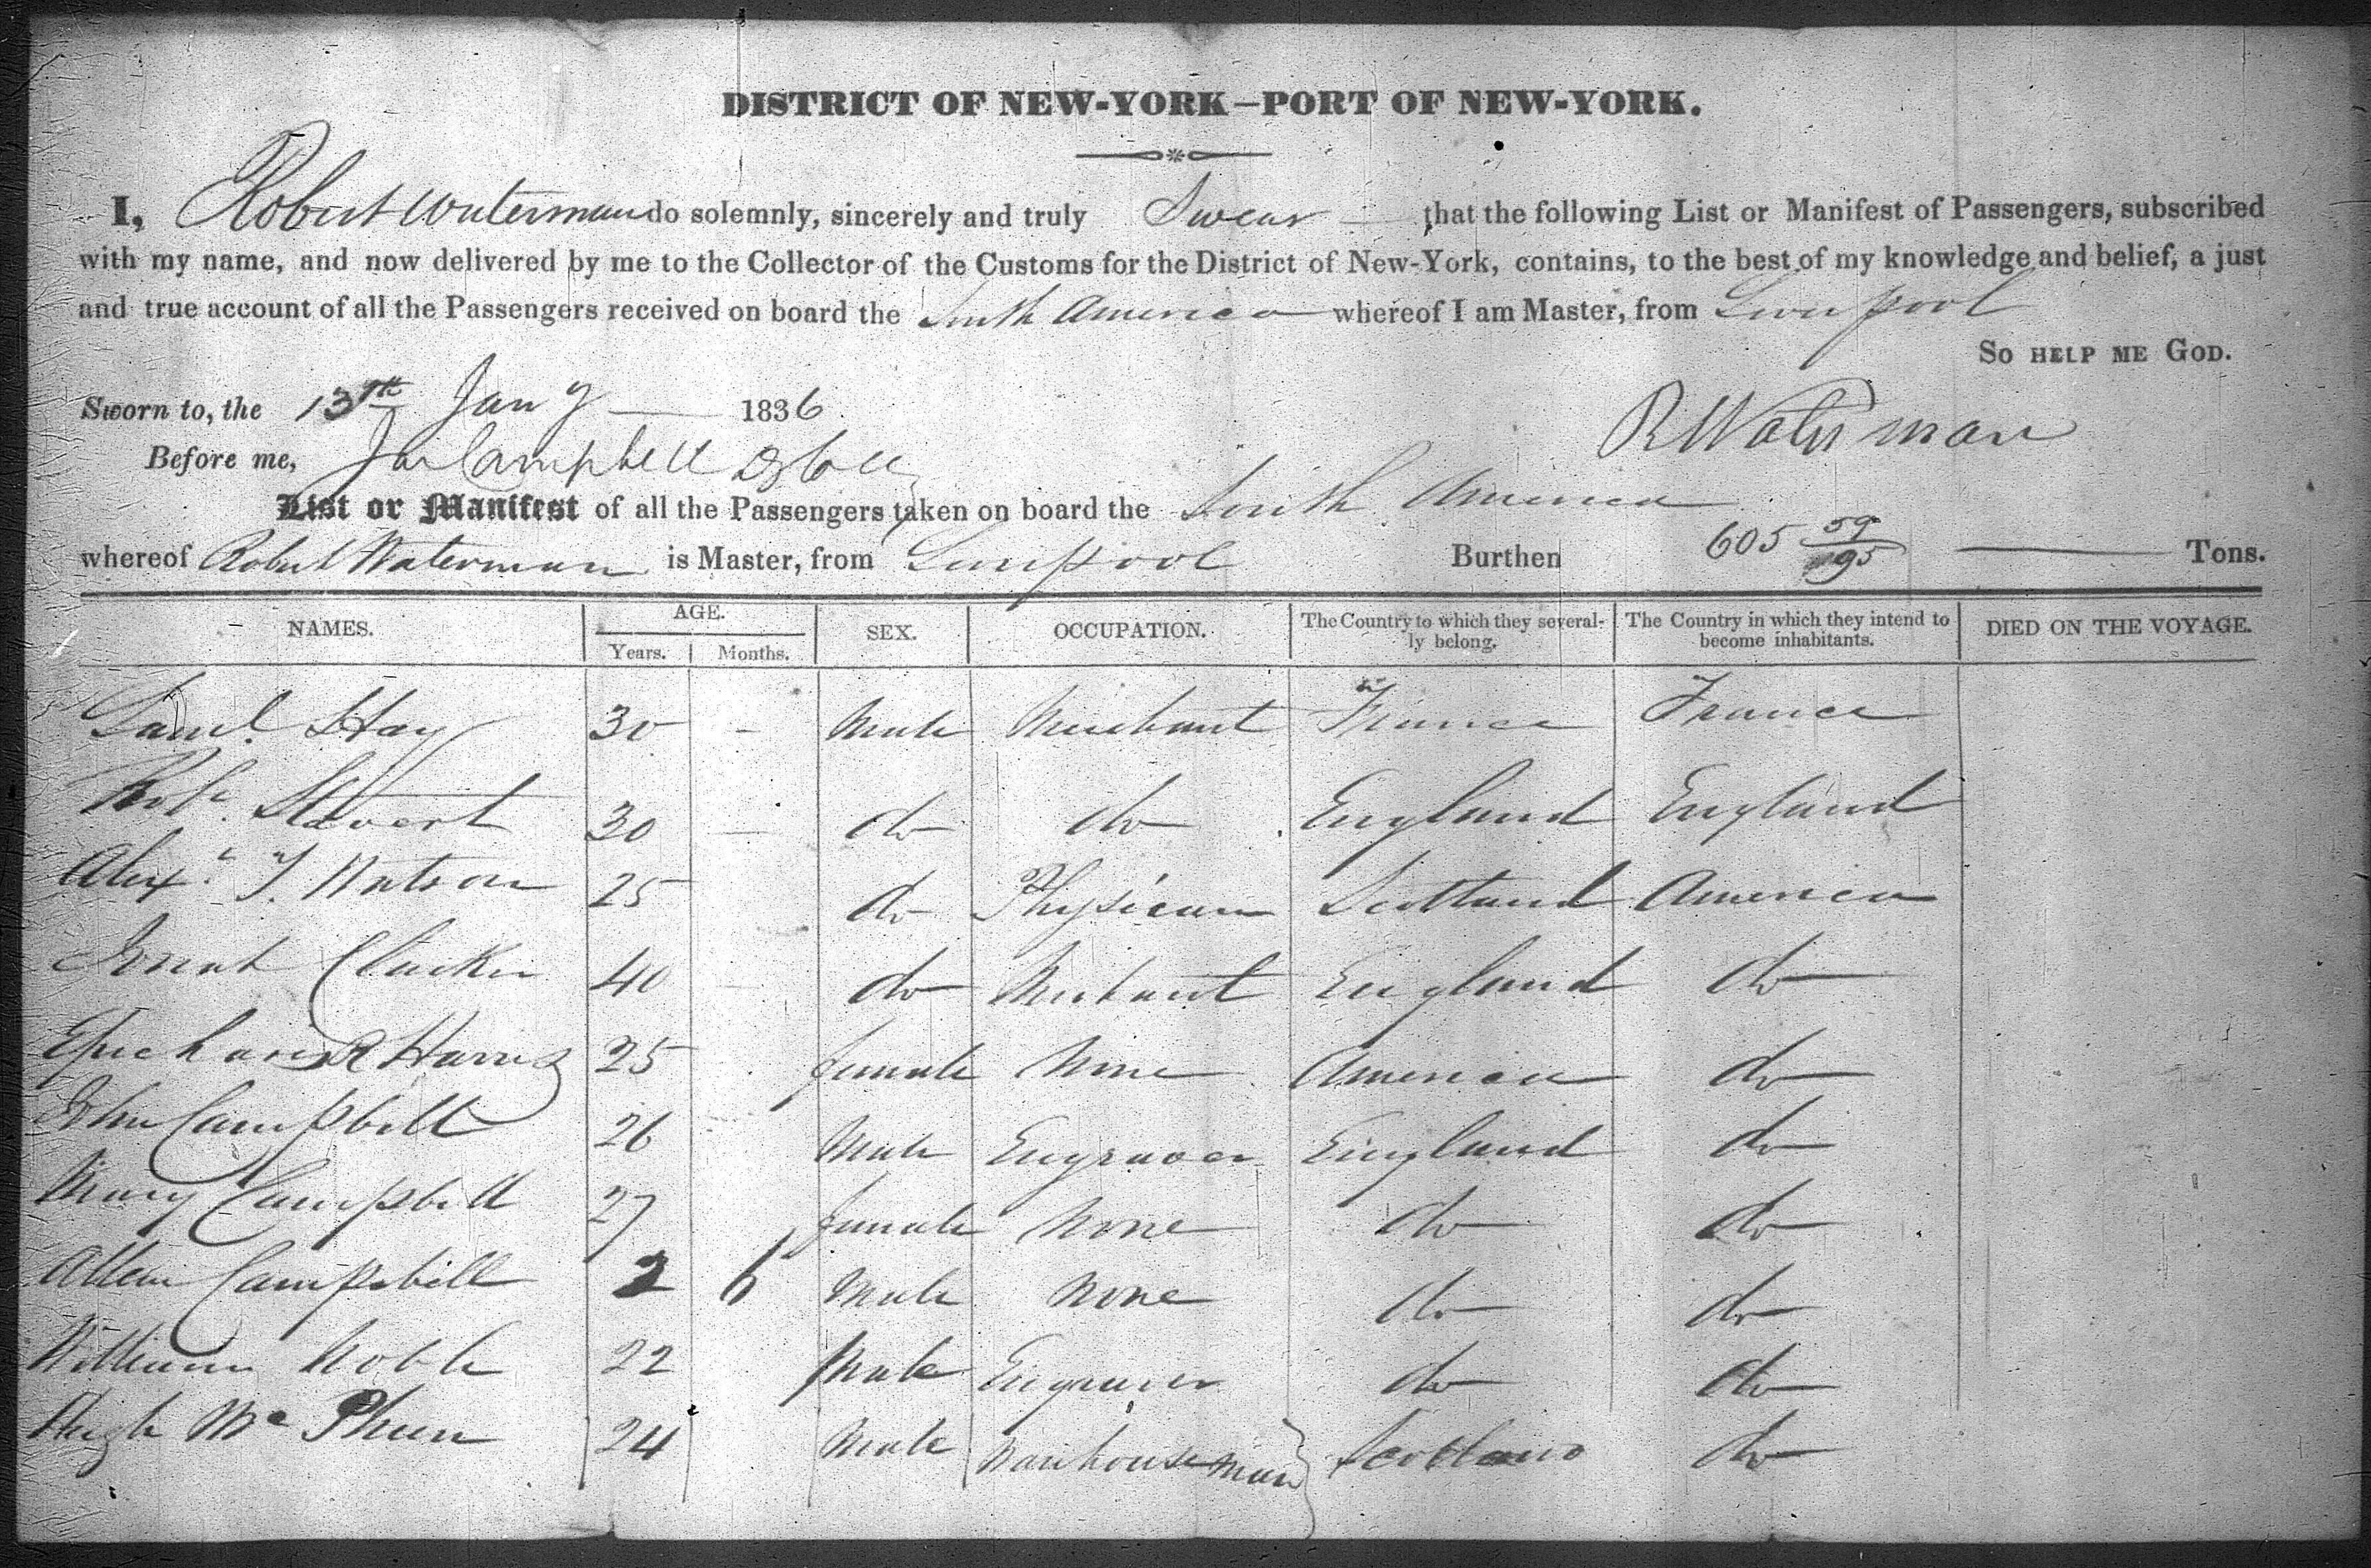 DISTRICT OF NEW-YORK—PORT OF NEW-YORK.
I, Robert Waterman do solemnly, sincerely and truly Swear — that the following List or Manifest of Passengers, subscribed
with my name, and now delivered by me to the Collector of the Customs for the District of New-York, contains, to the best of my knowledge and belief, a just
and true account of all the Passengers received on board the South America whereof I am Master, from Liverpool
SO HELP ME GOD.
Sworn to, the 13th Jany — 1836
R Waterman
Before me, Campbell
List or Manifest of all the Passengers taken on board the South America
whereof Robert Waterman is Master, from Liverpool Burthen 605 59/95 — Tons.
NAMES. AGE. Years. Months. SEX. OCCUPATION. The Country to which they severally belong. The Country in which they intend to become inhabitants. DIED ON THE VOYAGE.
Saml. Hay 30 - Male Merchant France France
Stewart 30 — do do England England
Alexr. T. Watson 25 do Physician Scotland America
40 do Merchant England do
Harris 25 female None America do
John Campbell 26 Male Engraver England do
Mary Campbell 27 female None do do
Allen Campbell 2 6 Male None do do
William Noble 22 Male Engraver do do
Hugh Mc Phun 24 Male Warehouseman Scotland do